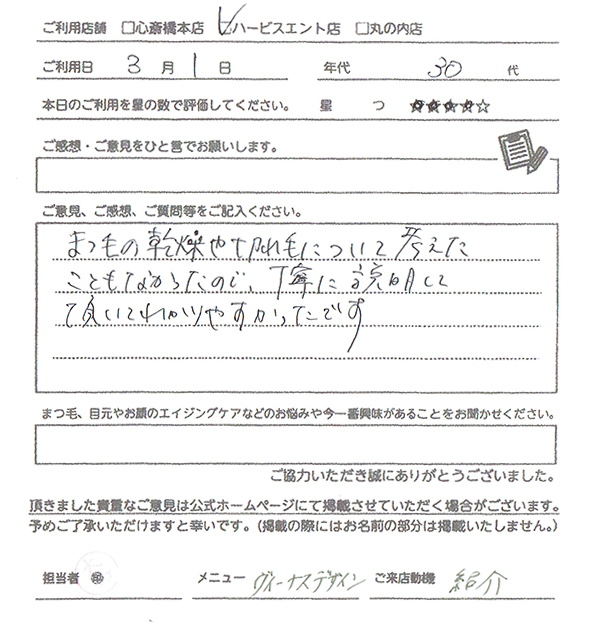 ご利用店舗 □心斎橋本店 ☑ハービスエント店 □丸の内店
ご利用日 3月1日 年代 30代
本日のご利用を星の数で評価してください。 星 つ ★★★★☆
ご感想・ご意見をひと言でお願いします。
ご意見、ご感想、ご質問等をご記入ください。
まつ毛の乾燥や切れ毛について考えた
こともなかったので、丁寧に説明して
頂いてわかりやすかったです
まつ毛、目元やお顔のエイジングケアなどのお悩みや今一番興味があることをお聞かせください。
ご協力いただき誠にありがとうございました。
頂きました貴重なご意見は公式ホームページにて掲載させていただく場合がございます。
予めご了承いただけますと幸いです。(掲載の際にはお名前の部分は掲載いたしません。)
担当者 ㊞ メニュー ヴィーナスデザイン ご来店動機 紹介